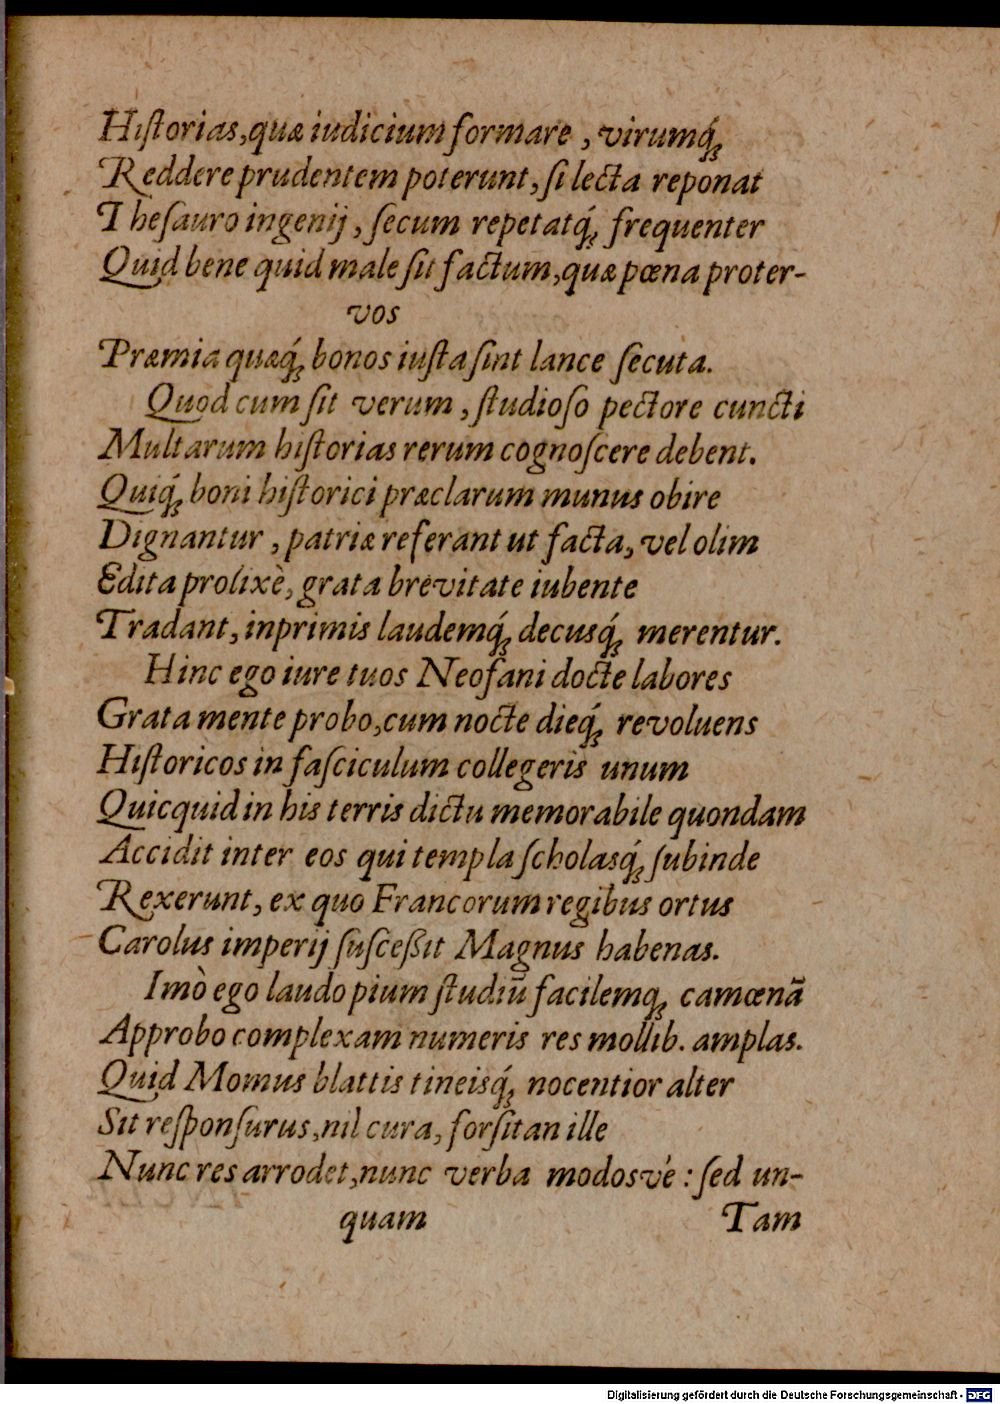 Hiſtorias, quæ iudicium formare, virumq́;
Reddere prudentem poterunt, ſi lecta reponat
Theſauro ingenij, ſecum repetatq́; frequenter
Quid bene quid male ſit factum, quæ pœna proter-
vos
Præmia quæq́; bonos iuſta ſint lance ſecuta.
Quod cum ſit verum, ſtudioſo pectore cuncti
Multarum hiſtorias rerum cognoſcere debent.
Quiq́; boni hiſtorici præclarum munus obire
Dignantur, patriæ referant ut facta, vel olim
Edita prolixè, grata brevitate iubente
Tradant, inprimis laudemq́; decusq́; merentur.
Hinc ego iure tuos Neofani docte labores
Grata mente probo, cum nocte dieq́; revoluens
Hiſtoricos in faſciculum collegeris unum
Quicquid in his terris dictu memorabile quondam
Accidit inter eos qui templa ſcholasq́; ſubinde
Rexerunt, ex quo Francorum regibus ortus
Carolus imperij ſuſceßit Magnus habenas.
Imò ego laudo pium ſtudiū facilemq; camœnā
Approbo complexam numeris res mollib. amplas.
Quid Momus blattis tineisq́; nocentior alter
Sit reſponſurus, nil cura, forſitan ille
Nunc res arrodet, nunc verba modosvè: ſed un-
quam Tam
Digitalisierung gefördert durch die Deutsche Forschungsgemeinschaft - DFG